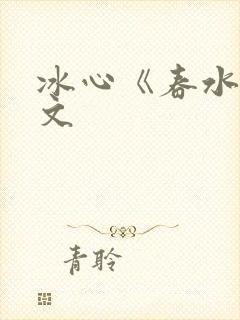 冰心《春水
文
青聆